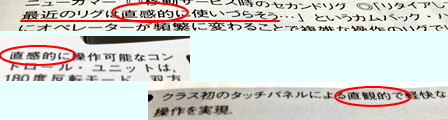 ニューカマー ◎移動サービス時のセカンドリグ ◎「リタイアし
最近のリグは直感的に使いづらそう…」というカムバック・ハ
にオペレーターが頻繁に変わることで複雑な操作のリグでは
直感的に操作可能なコン
トロール・ユニットは，
180度反転モード，双方
● クラス初のタッチパネルによる直観的で軽快な
操作を実現.